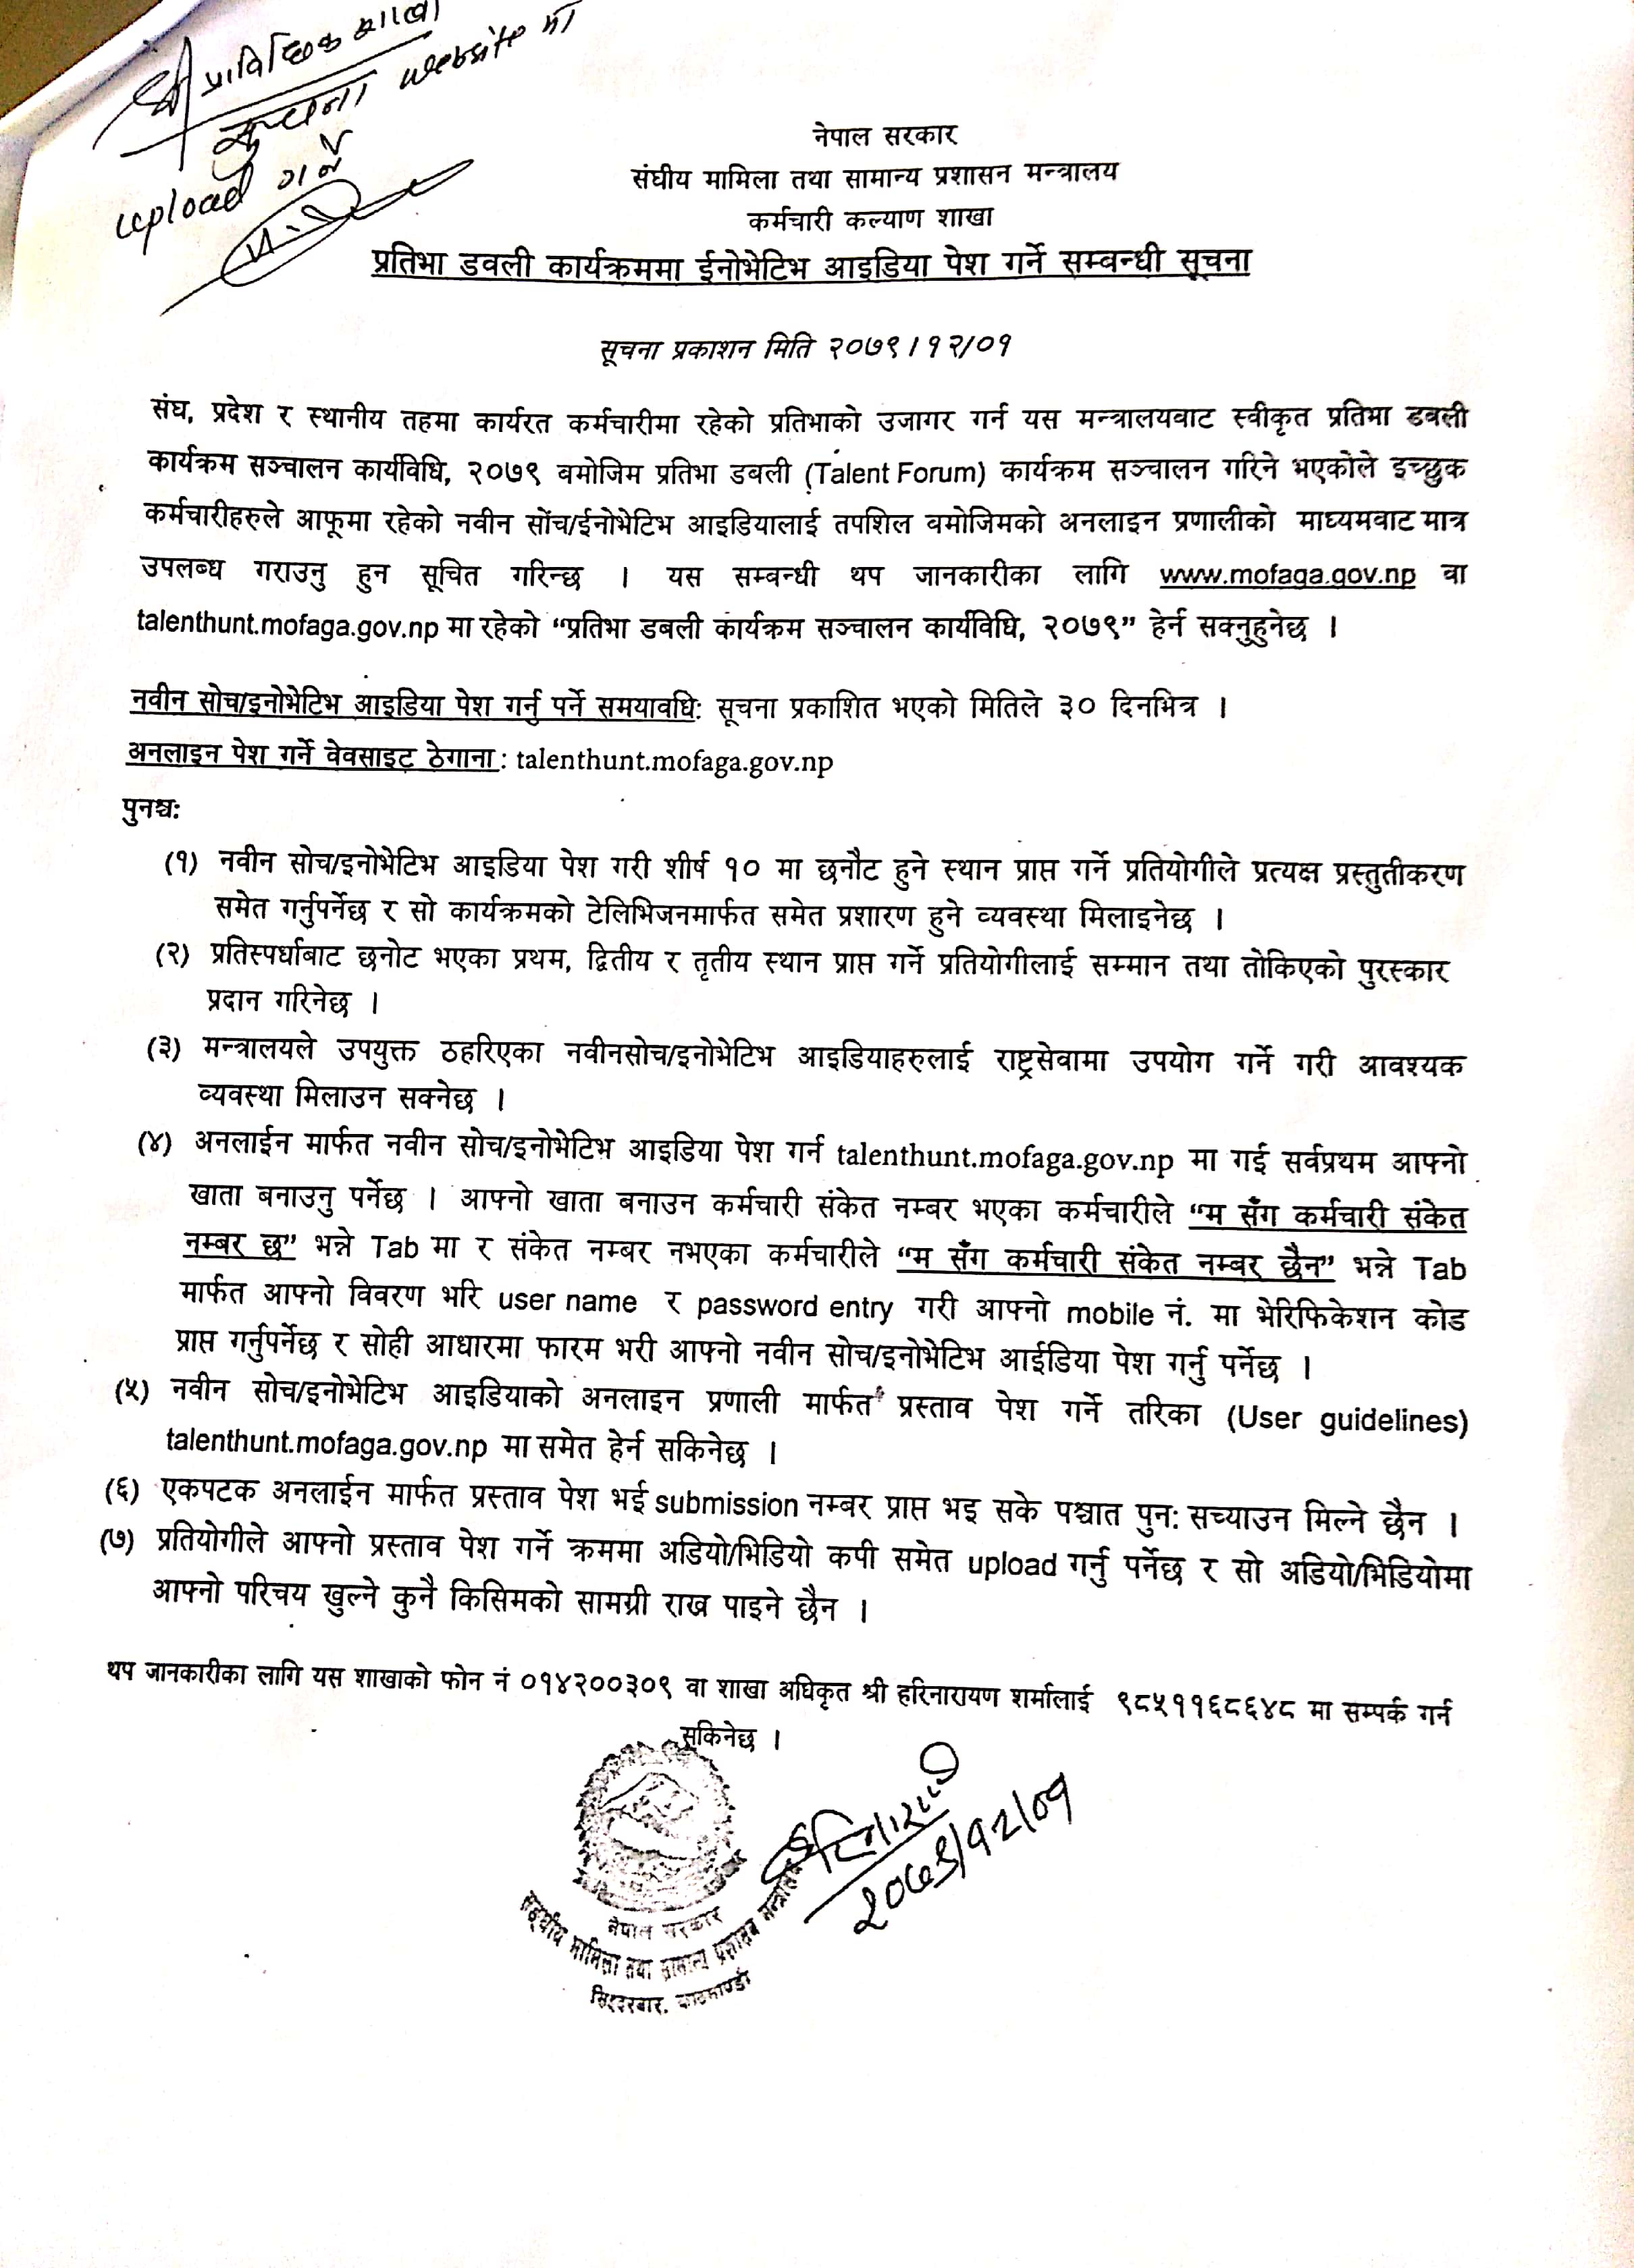 श्री प्राविधिक शाखा
सूचना website मा
upload गर्ने
नेपाल सरकार
संघीय मामिला तथा सामान्य प्रशासन मन्त्रालय
कर्मचारी कल्याण शाखा
प्रतिभा डवली कार्यक्रममा ईनोभेटिभ आइडिया पेश गर्ने सम्वन्धी सूचना
सूचना प्रकाशन मिति २०७९।१२/०१
संघ, प्रदेश र स्थानीय तहमा कार्यरत कर्मचारीमा रहेको प्रतिभाको उजागर गर्न यस मन्त्रालयवाट स्वीकृत प्रतिभा डबली
कार्यक्रम सञ्चालन कार्यविधि, २०७९ वमोजिम प्रतिभा डबली (Talent Forum) कार्यक्रम सञ्चालन गरिने भएकोले इच्छुक
कर्मचारीहरुले आफूमा रहेको नवीन सोंच/ईनोभेटिभ आइडियालाई तपशिल वमोजिमको अनलाइन प्रणालीको माध्यमवाट मात्र
उपलब्ध गराउनु हुन सूचित गरिन्छ । यस सम्बन्धी थप जानकारीका लागि www.mofaga.gov.np वा
talenthunt.mofaga.gov.np मा रहेको “प्रतिभा डबली कार्यक्रम सञ्चालन कार्यविधि, २०७९” हेर्न सक्नुहुनेछ ।
नवीन सोच/इनोभेटिभ आइडिया पेश गर्नु पर्ने समयावधि: सूचना प्रकाशित भएको मितिले ३० दिनभित्र ।
अनलाइन पेश गर्ने वेवसाइट ठेगाना : talenthunt.mofaga.gov.np
पुनश्च:
(१) नवीन सोच/इनोभेटिभ आइडिया पेश गरी शीर्ष १० मा छनौट हुने स्थान प्राप्त गर्ने प्रतियोगीले प्रत्यक्ष प्रस्तुतीकरण
समेत गर्नुपर्नेछ र सो कार्यक्रमको टेलिभिजनमार्फत समेत प्रशारण हुने व्यवस्था मिलाइनेछ ।
(२) प्रतिस्पर्धाबाट छनोट भएका प्रथम, द्वितीय र तृतीय स्थान प्राप्त गर्ने प्रतियोगीलाई सम्मान तथा तोकिएको पुरस्कार
प्रदान गरिनेछ ।
(३) मन्त्रालयले उपयुक्त ठहरिएका नवीनसोच/इनोभेटिभ आइडियाहरुलाई राष्ट्रसेवामा उपयोग गर्ने गरी आवश्यक
व्यवस्था मिलाउन सक्नेछ ।
(४) अनलाईन मार्फत नवीन सोच/इनोभेटिभ आइडिया पेश गर्न talenthunt.mofaga.gov.np मा गई सर्वप्रथम आफ्नो
खाता बनाउनु पर्नेछ । आफ्नो खाता बनाउन कर्मचारी संकेत नम्बर भएका कर्मचारीले “म सँग कर्मचारी संकेत
नम्बर छ” भन्ने Tab मा र संकेत नम्बर नभएका कर्मचारीले “म सँग कर्मचारी संकेत नम्बर छैन” भन्ने Tab
मार्फत आफ्नो विवरण भरि user name र password entry गरी आफ्नो mobile नं. मा भेरिफिकेशन कोड
प्राप्त गर्नुपर्नेछ र सोही आधारमा फारम भरी आफ्नो नवीन सोच/इनोभेटिभ आईडिया पेश गर्नु पर्नेछ ।
(५) नवीन सोच/इनोभेटिभ आइडियाको अनलाइन प्रणाली मार्फत प्रस्ताव पेश गर्ने तरिका (User guidelines)
talenthunt.mofaga.gov.np मा समेत हेर्न सकिनेछ ।
(६) एकपटक अनलाईन मार्फत प्रस्ताव पेश भई submission नम्बर प्राप्त भइ सके पश्चात पुन: सच्याउन मिल्ने छैन ।
(७) प्रतियोगीले आफ्नो प्रस्ताव पेश गर्ने क्रममा अडियो/भिडियो कपी समेत upload गर्नु पर्नेछ र सो अडियो/भिडियोमा
आफ्नो परिचय खुल्ने कुनै किसिमको सामग्री राख्न पाइने छैन ।
थप जानकारीका लागि यस शाखाको फोन नं ०१४२००३०९ वा शाखा अधिकृत श्री हरिनारायण शर्मालाई ९८५११६८६४८ मा सम्पर्क गर्न
सकिनेछ ।
२०७९/१२/०१
नेपाल सरकार
सङ्घीय मामिला तथा सामान्य प्रशासन मन्त्रालय
सिंहदरबार, काठमाण्डौ